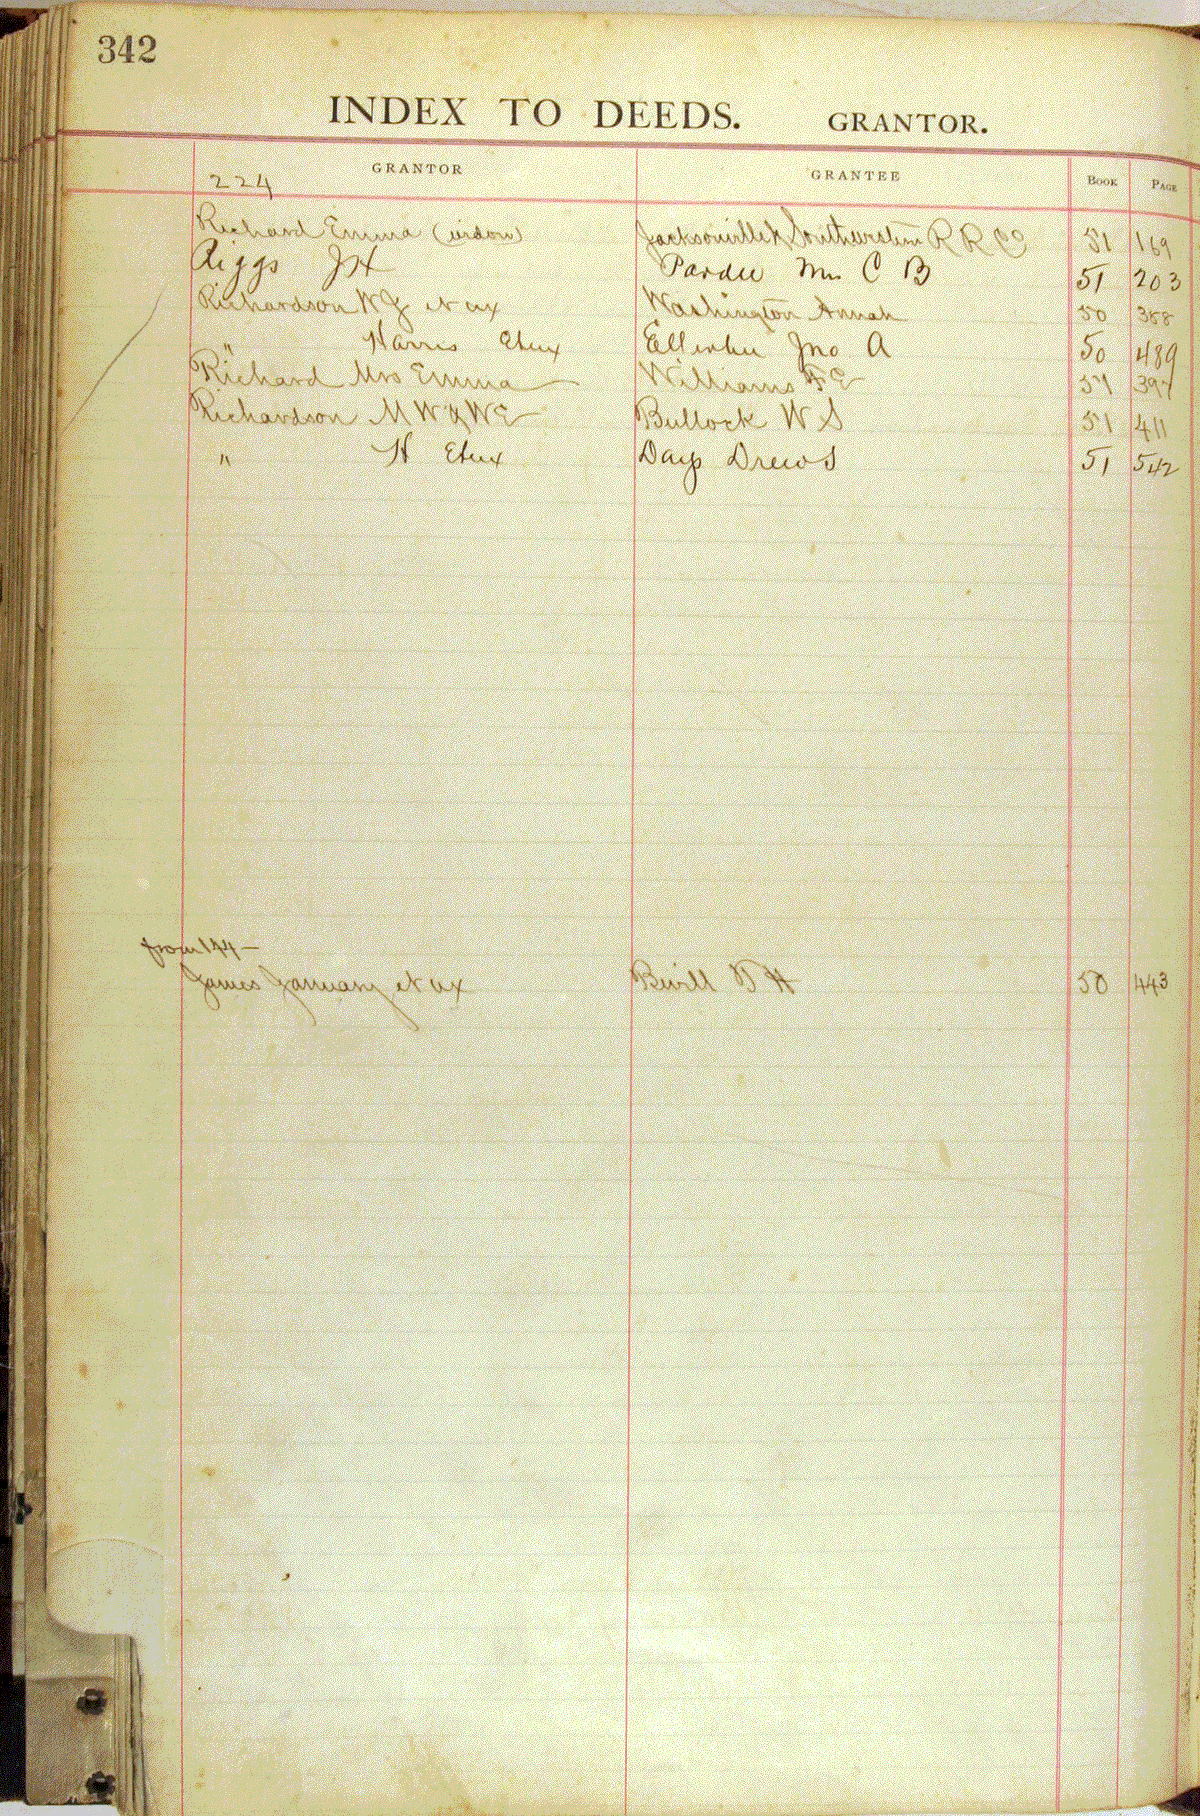 342
INDEX TO DEEDS. GRANTOR.
GRANTOR GRANTEE BOOK PAGE
224
Richard Emma (widow) Jacksonville & Southwestern R R Co 51 169
Riggs J H Pardee Mrs C B 51 203
Richardson W J et ux Washington Annah 50 388
" Harris Etux Jno A 50 489
Richard Mrs Emma Williams F E 51 397
Richardson M W & W E Bullock W S 51 411
" H Etux Days Drew S 51 542
from 144—
James January et ux Bevill H 50 443